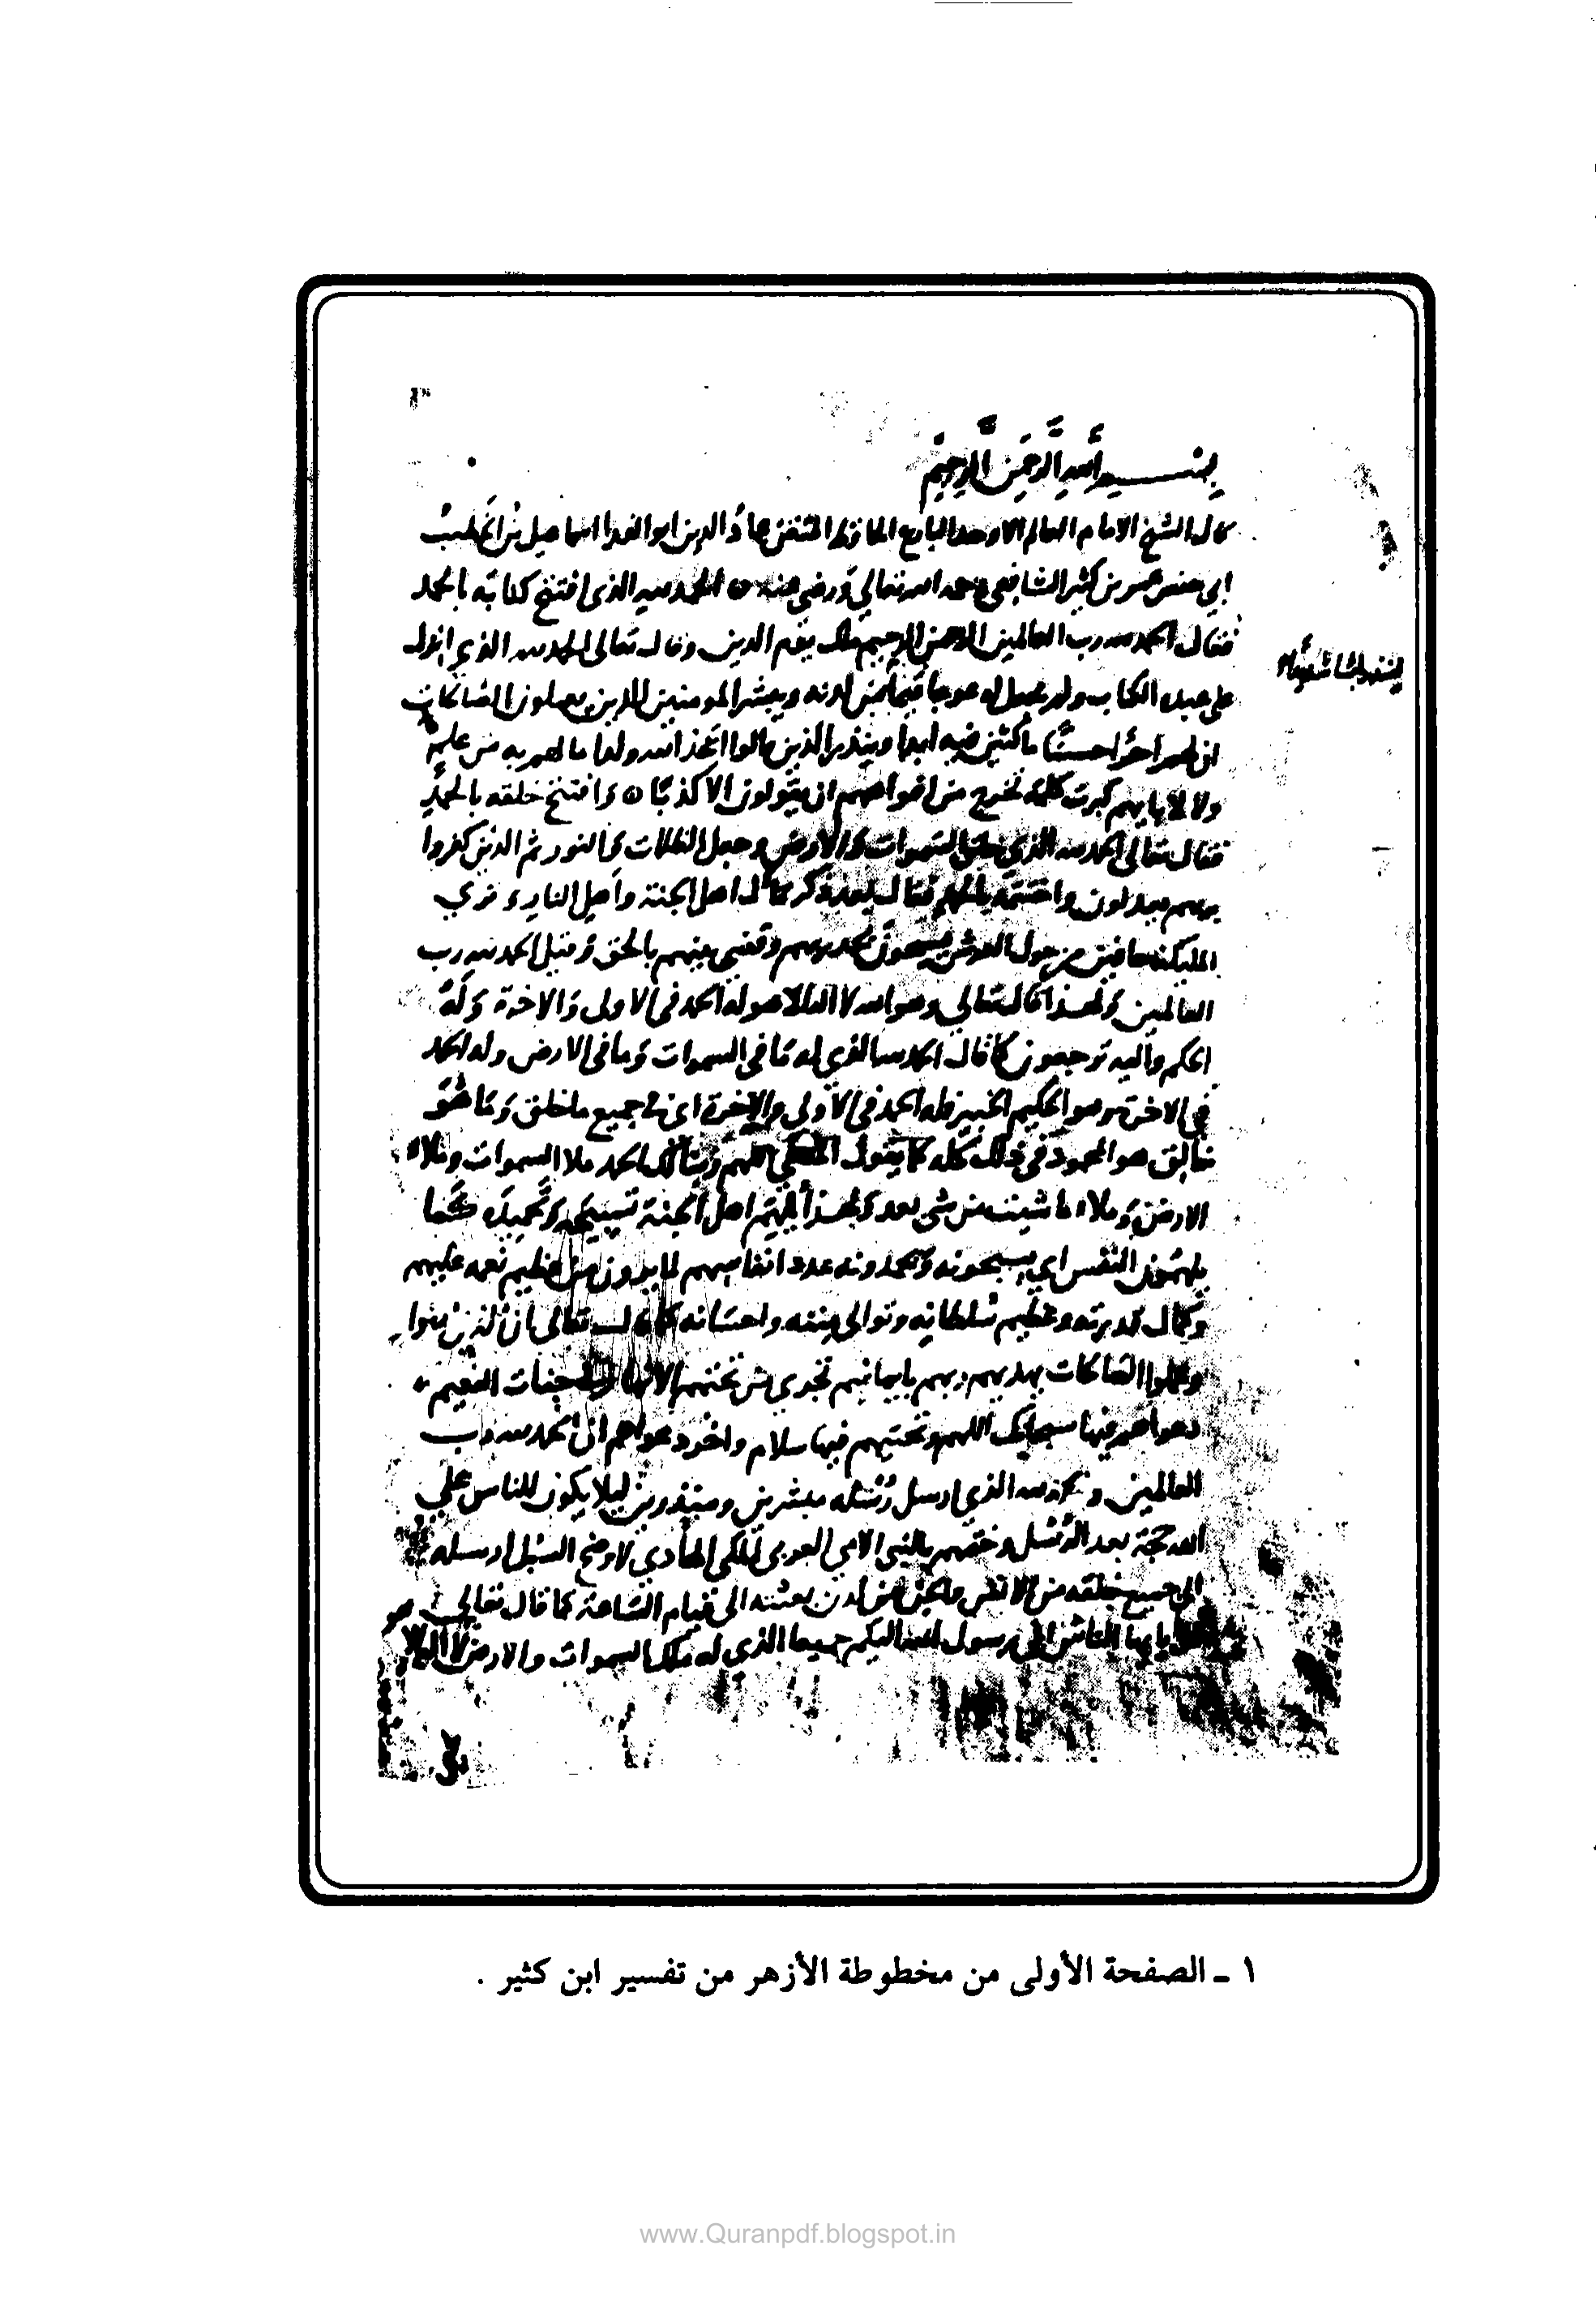 بسم الله الرحمن الرحيم
قال الشيخ الامام العالم الاوحد البارع الحافظ المتقن عماد الدين ابو الفدا اسماعيل بن الخطيب
ابي حفص عمر بن كثير الشافعي رحمه الله تعالي ورضي عنه ٥ الحمد لله الذي افتتح كتابه بالحمد
فقال الحمد لله رب العالمين الرحمن الرحيم ملك يوم الدين وقال تعالى الحمد لله الذي انزل
على عبده الكتاب ولم يجعل له عوجا قيما من لدنه ويبشر المومنين الذين يعملون الصالحات
ان لهم اجرا حسنا ماكثين فيه ابدا وينذر الذين قالوا اتخذ الله ولدا ما لهم به من علم
ولا لابايهم كبرت كلمة تخرج من افواههم ان يقولون الا كذبا ٥ وافتتح خلقه بالحمد
فقال تعالى الحمد لله الذي خلق السموات والارض وجعل الظلمات والنور ثم الذين كفروا
بربهم يعدلون واختتمه بالحمد فقال بعد ذكر مآل اهل الجنة واهل النار وتري
المليكة حافين من حول العرش يسبحون بحمد ربهم وقضي بينهم بالحق وقيل الحمد لله رب
العالمين ولهذا قال تعالي وهو الله لا اله الا هو له الحمد في الاولى والاخرة وله
الحكم واليه ترجعون كما قال الحمد لله الذي له ما في السموات وما في الارض وله الحمد
في الاخرة وهو الحكيم الخبير فله الحمد في الاولي والاخرة اي في جميع ما خلق وما هو
خالق هو المحمود في ذلك كله كما يقول المصلي اللهم ربنا لك الحمد ملا السموات وملاء
الارض وملاء ما شيت من شي بعد ولهذا يلهم اهل الجنة تسبيحه وتحميده كما
يلهمون النفس اي يسبحونه ويحمدونه عدد انفاسهم لما يرون من عظيم نعمه عليهم
وكمال قدرته وعظيم سلطانه وتوالي مننه واحسانه كما قال تعالى ان الذين امنوا
وعملوا الصالحات يهديهم ربهم بايمانهم تجري من تحتهم الانهار في جنات النعيم
دعواهم فيها سبحانك اللهم وتحيتهم فيها سلام واخر دعواهم ان الحمد لله رب
العالمين والحمد لله الذي ارسل رسله مبشرين ومنذرين ليلا يكون للناس علي
الله حجة بعد الرسل وختمهم بالنبي الامي العربي المكي الهادي لاوضح السبل ارسله
الي جميع خلقه من الانس والجن من لدن بعثته الى قيام الساعة كما قال تعالي
قل يا يها الناس اني رسول الله اليكم جميعا الذي له ملك السموات والارض لا اله الا هو
١ ـ الصفحة الأولى من مخطوطة الأزهر من تفسير ابن كثير .
www.Quranpdf.blogspot.in